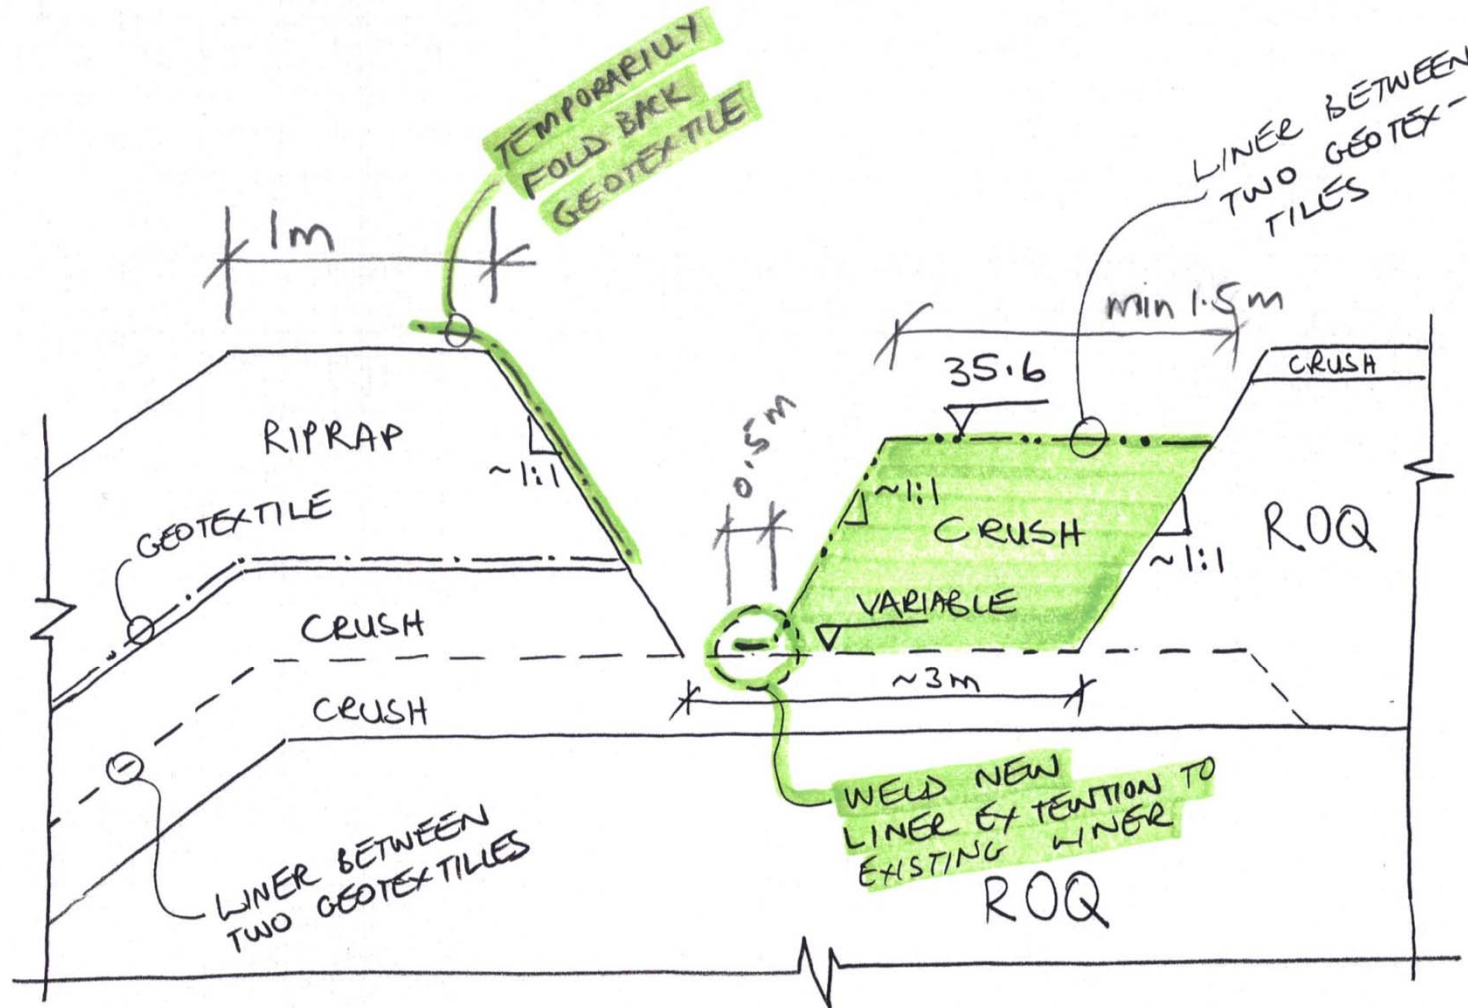 TEMPORARILLY
FOLD BACK
GEOTEXTILE
LINER BETWEEN
TWO GEOTEX-
TILES
1m
min 1.5m
CRUSH
35.6
RIPRAP
~1:1
0.5m
~1:1
CRUSH
ROQ
~1:1
GEOTEXTILE
VARIABLE
CRUSH
~3m
CRUSH
WELD NEW
LINER EXTENTION TO
EXISTING LINER
LINER BETWEEN
TWO GEOTEXTILLES
ROQ